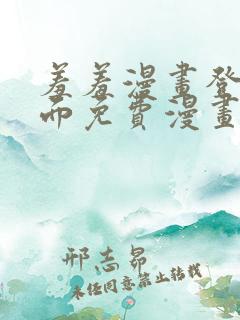 羞羞漫畫登
面免費漫畫
邢志昂
未经同意禁止转载